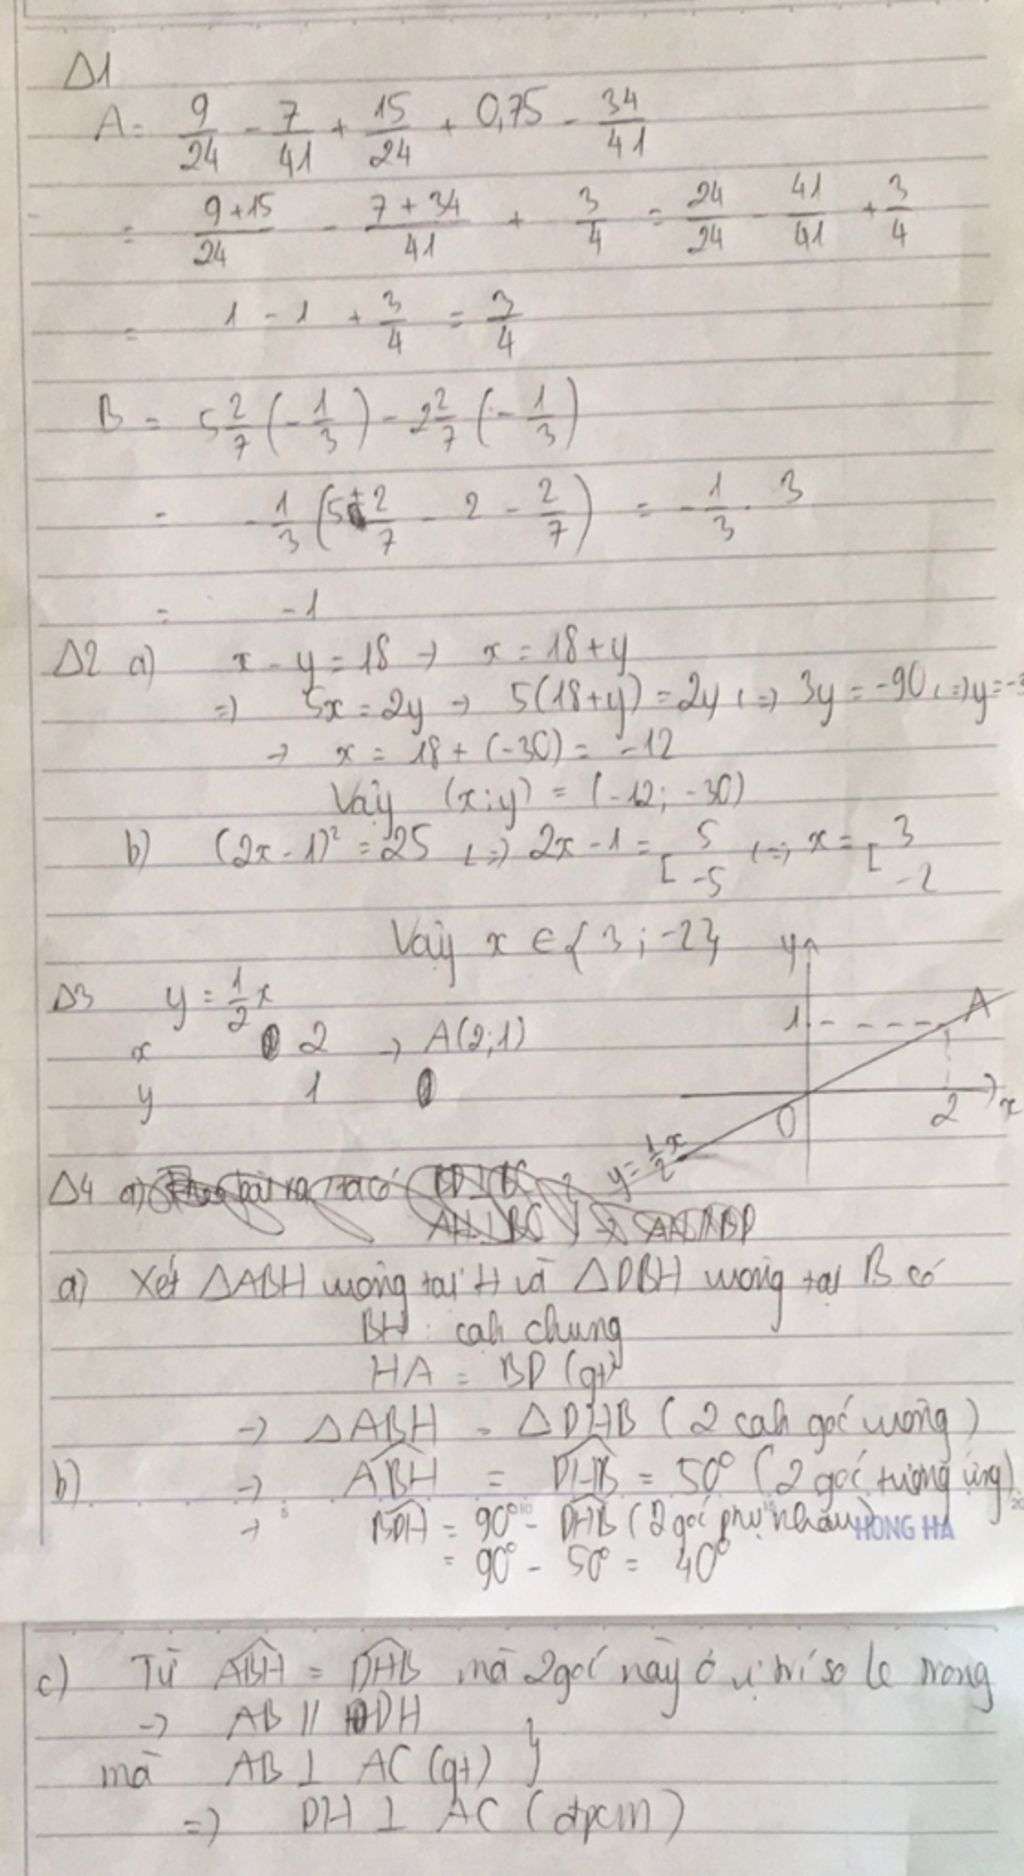 Δ1
A = 9/24 - 7/41 + 15/24 + 0,75 - 34/41
= (9+15)/24 - (7+34)/41 + 3/4 = 24/24 - 41/41 + 3/4
= 1 - 1 + 3/4 = 3/4
B = 5 2/7 (-1/3) - 2 2/7 (-1/3)
= -1/3 (5 + 2/7 - 2 - 2/7) = -1/3 . 3
= -1
Δ2 a) x - y = 18 → x = 18 + y
=> 5x = 2y → 5(18+y) = 2y <=> 3y = -90 <=> y = -3
→ x = 18 + (-30) = -12
Vậy (x;y) = (-12; -30)
b) (2x - 1)² = 25 <=> 2x - 1 = [ 5 -5 <=> x = [ 3 -2
Vậy x ∈ {3; -2}
Δ3 y = 1/2 x
x 2 → A(2;1)
y 1
y
1
A
0
2
x
y = 1/2 x
Δ4 a)
a) Xét ΔABH vuông tại H và ΔDBH vuông tại B có
BH : cah chung
HA = BD (gt)
→ ΔABH = ΔDHB (2 cah goć vuông)
b) → ABH = DHB = 50° (2 goć tương ứng)
→ BDH = 90° - DHB (2 goć phụ nhau)
HONG HA
= 90° - 50° = 40°
c) Từ ABH = DHB mà 2 goć này ở vị trí so le trong
→ AB // DH
mà AB ⊥ AC (gt) }
=> DH ⊥ AC (đpcm)